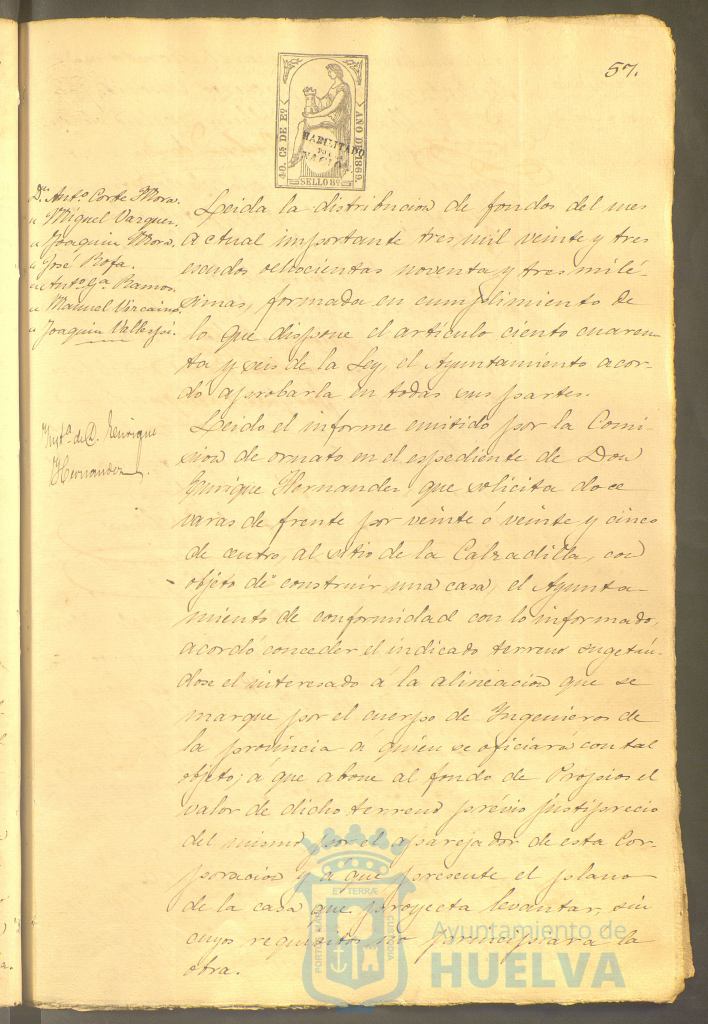 57.
40. Cs DE Eo
AÑO DE 1869.
HABILITADO
POR LA
NACION
SELLO 8o
Dn. Anto. Corte Mora.
" Miguel Vazquez.
" Joaquin Mora.
" José Rofa.
" Anto. Ga. Ramos.
" Manuel Vizcaino.
" Joaquin Vallespi.
Leida la distribucion de fondos del mes
actual importante tres mil veinte y tres
escudos ochocientas noventa y tres milé-
simas, formada en cumplimiento de
lo que dispone el articulo ciento cuaren-
ta y seis de la Ley, el Ayuntamiento acor-
dó aprobarla en todas sus partes.
Insta. de D. Enrique
Hernandez.
Leido el informe emitido por la Comi-
sion de ornato en el espediente de Don
Enrique Hernandez, que solicita doce
varas de frente por veinte ó veinte y cinco
de centro, al sitio de la Calzadilla, con
objeto de construir una casa, el Ayunta-
miento de conformidad con lo informado,
acordó conceder el indicado terreno sugetán-
dose el interesado á la alineacion que se
marque por el cuerpo de Ingenieros de
la provincia á quien se oficiará con tal
objeto; á que abone al fondo de Propios el
valor de dicho terreno prévio justiprecio
del mismo por el aparejador de esta Cor-
poracion y á que presente el plano
de la casa que proyecta levantar, sin
cuyos requisitos no principiará la
obra.
PORTUS MARIS
ET TERRÆ
CUSTODIA
Ayuntamiento de
HUELVA